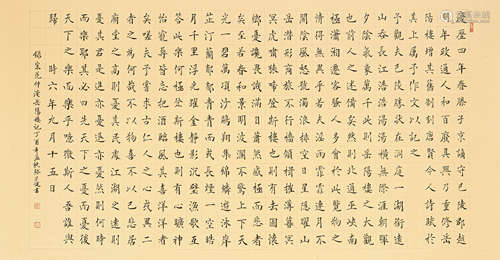 慶歷四年春滕子京謫守巴陵郡越
明年政通人和百廢具興乃重修岳
陽樓增其舊制刻唐賢今人詩賦於
其上屬予作文以記之
予觀夫巴陵勝狀在洞庭一湖銜遠
山吞長江浩浩湯湯橫無際涯朝暉
夕陰氣象萬千此則岳陽樓之大觀
也前人之述備矣然則北通巫峽南
極瀟湘遷客騷人多會於此覽物之
情得無異乎若夫霪雨霏霏連月不
開陰風怒號濁浪排空日星隱曜山
岳潛形商旅不行檣傾楫摧薄暮冥
冥虎嘯猿啼登斯樓也則有去國懷
鄉憂讒畏譏滿目蕭然感極而悲者
矣至若春和景明波瀾不驚上下天
光一碧萬頃沙鷗翔集錦鱗游泳岸
芷汀蘭郁郁青青而或長煙一空皓
月千里浮光躍金靜影沉璧漁歌互
答此樂何極登斯樓也則有心曠神
怡寵辱皆忘把酒臨風其喜洋洋者
矣嗟夫予嘗求古仁人之心或異二
者之為何哉不以物喜不以己悲居
廟堂之高則憂其民處江湖之遠則
憂其君是進亦憂退亦憂然則何時
而樂耶其必曰先天下之憂而憂後
天下之樂而樂乎噫微斯人吾誰與
歸 時六年九月十五日
錄宋范仲淹岳陽樓記丁酉年孟秋